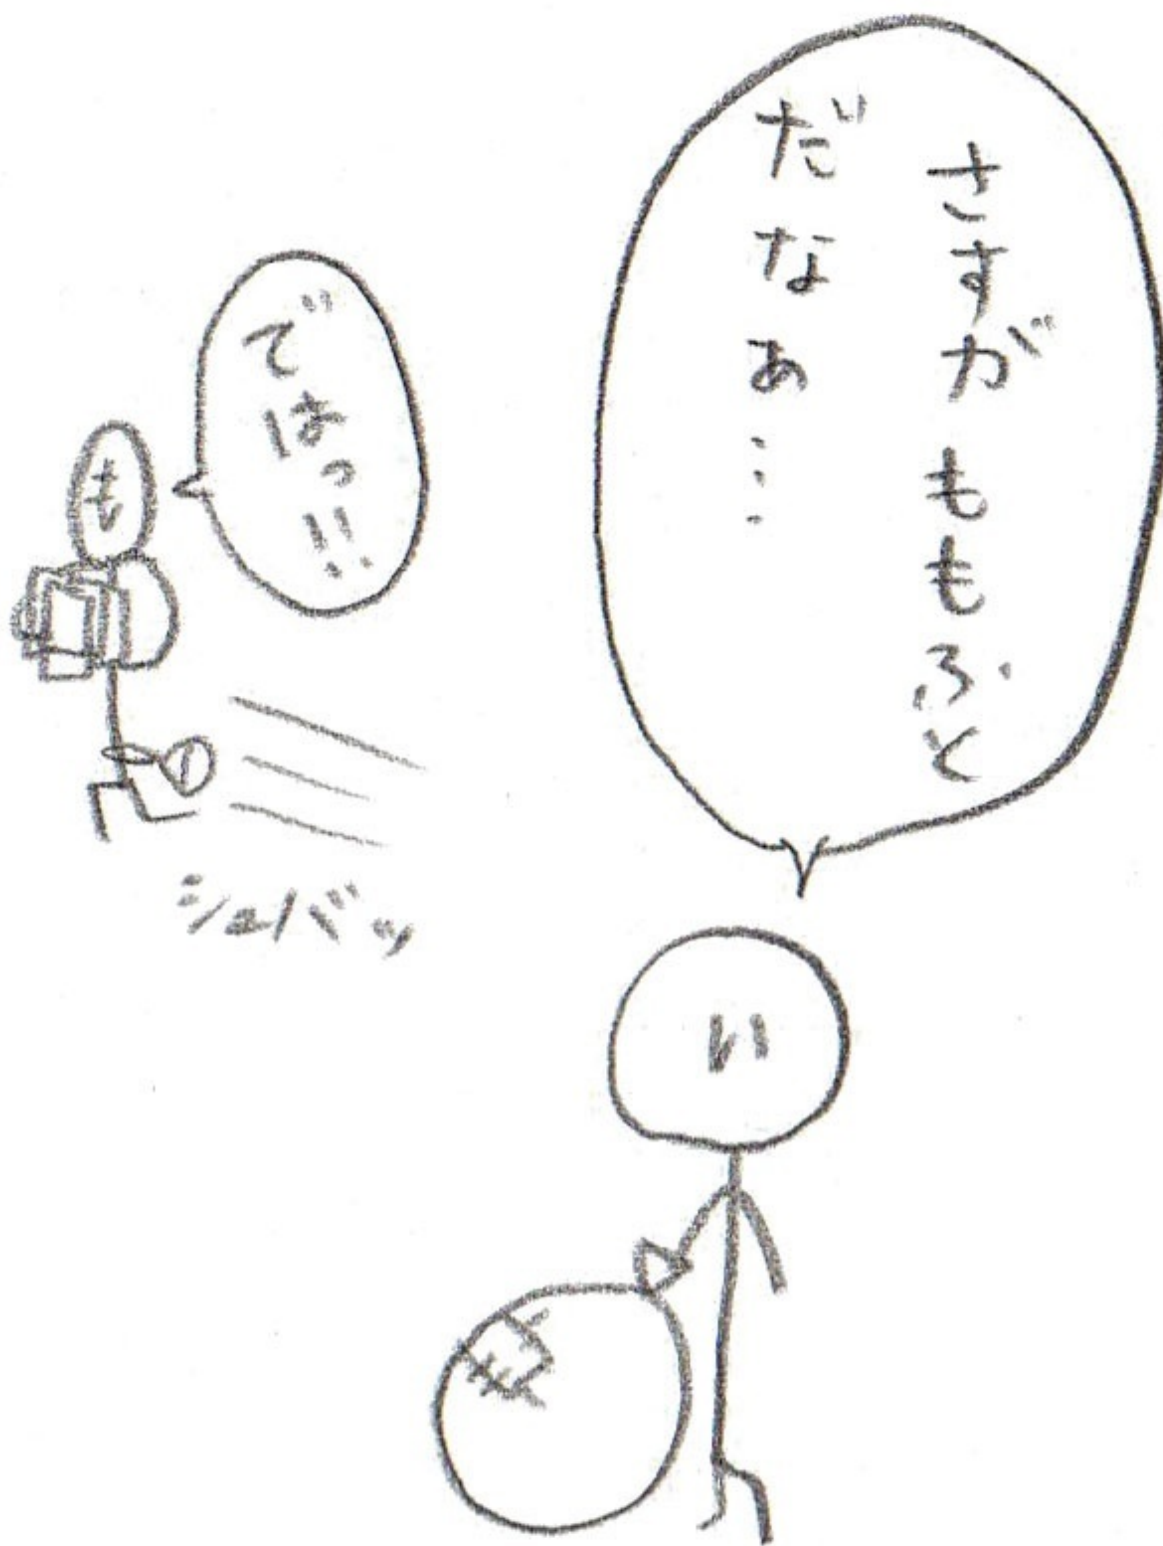 さすがももふと
だなぁ…
ではっ!!
も
シュバッ
い